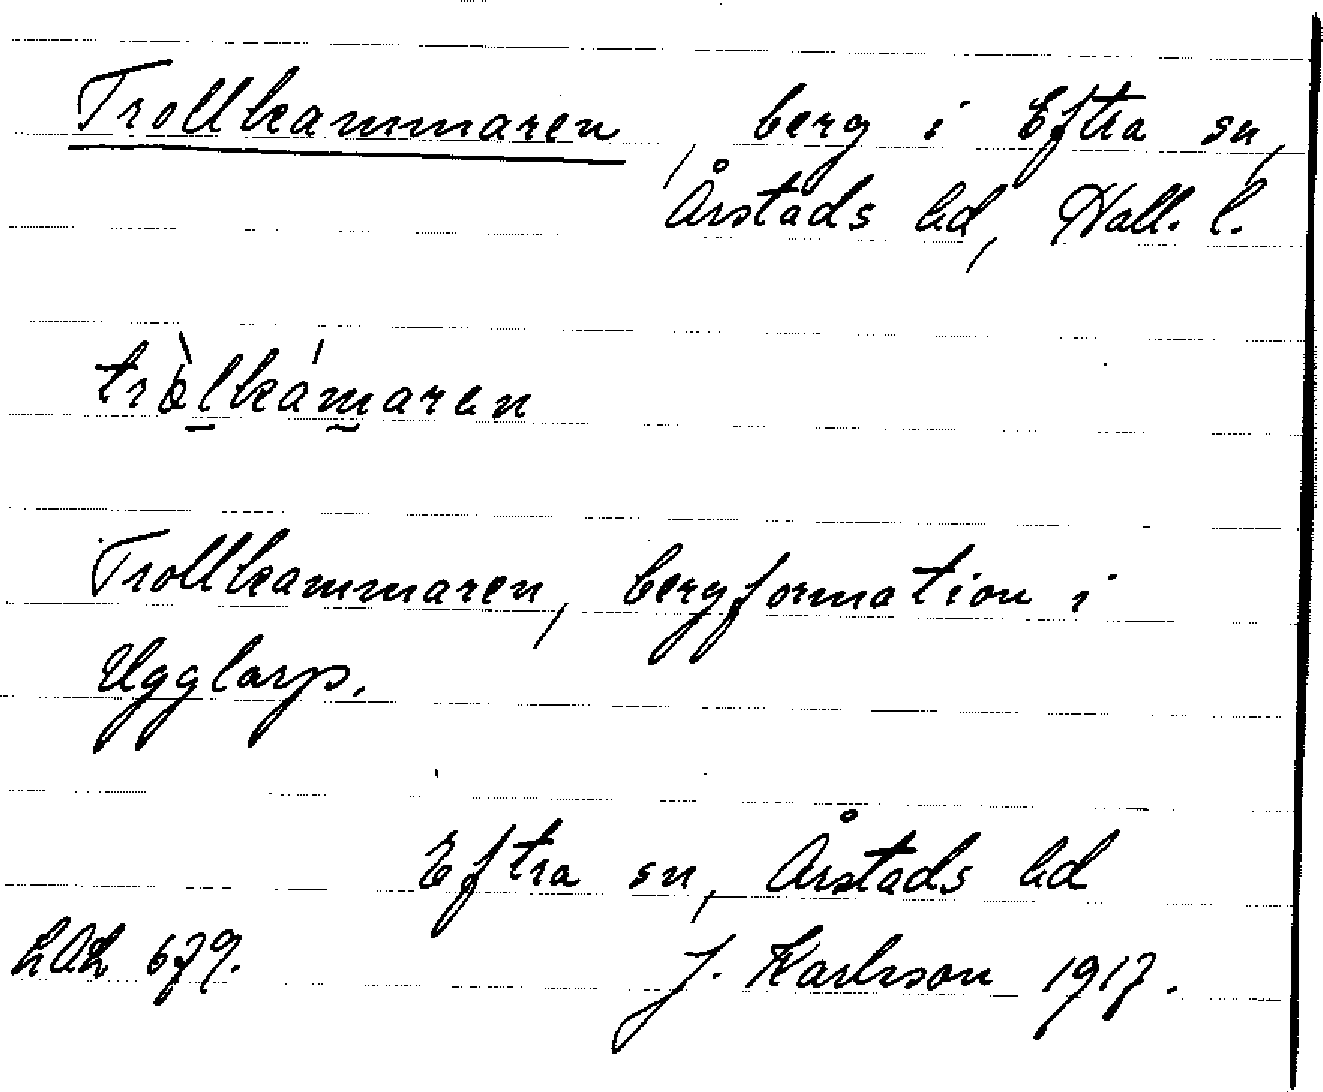 Trollkammaren, berg i Eftra sn,
Årstads hd, Hall. l.
tròlkámaren
Trollkammaren, bergformation i
Ugglarp.
Eftra sn, Årstads hd
LAL 679. J. Karlsson 1917.